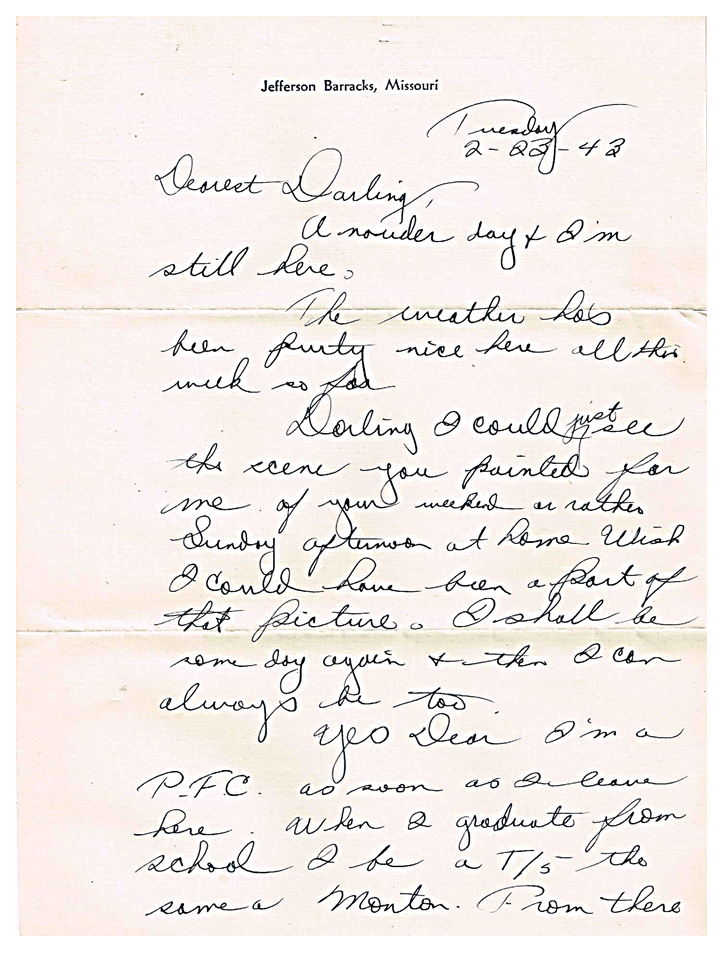 Jefferson Barracks, Missouri
Tuesday
2-23-43
Dearest Darling,
A nouder day & I'm
still here.
The weather has
been purty nice here all this
week so far
Darling I could just see
the scene you painted for
me of your weeked or rather
Sunday afternoon at home Wish
I could have been a part of
that picture. I shall be
some day again & then I can
always be too
Yes Dear I'm a
P.F.C. as soon as I leave
here. When I graduate from
school I be a T/5 the
same a Monton. From there